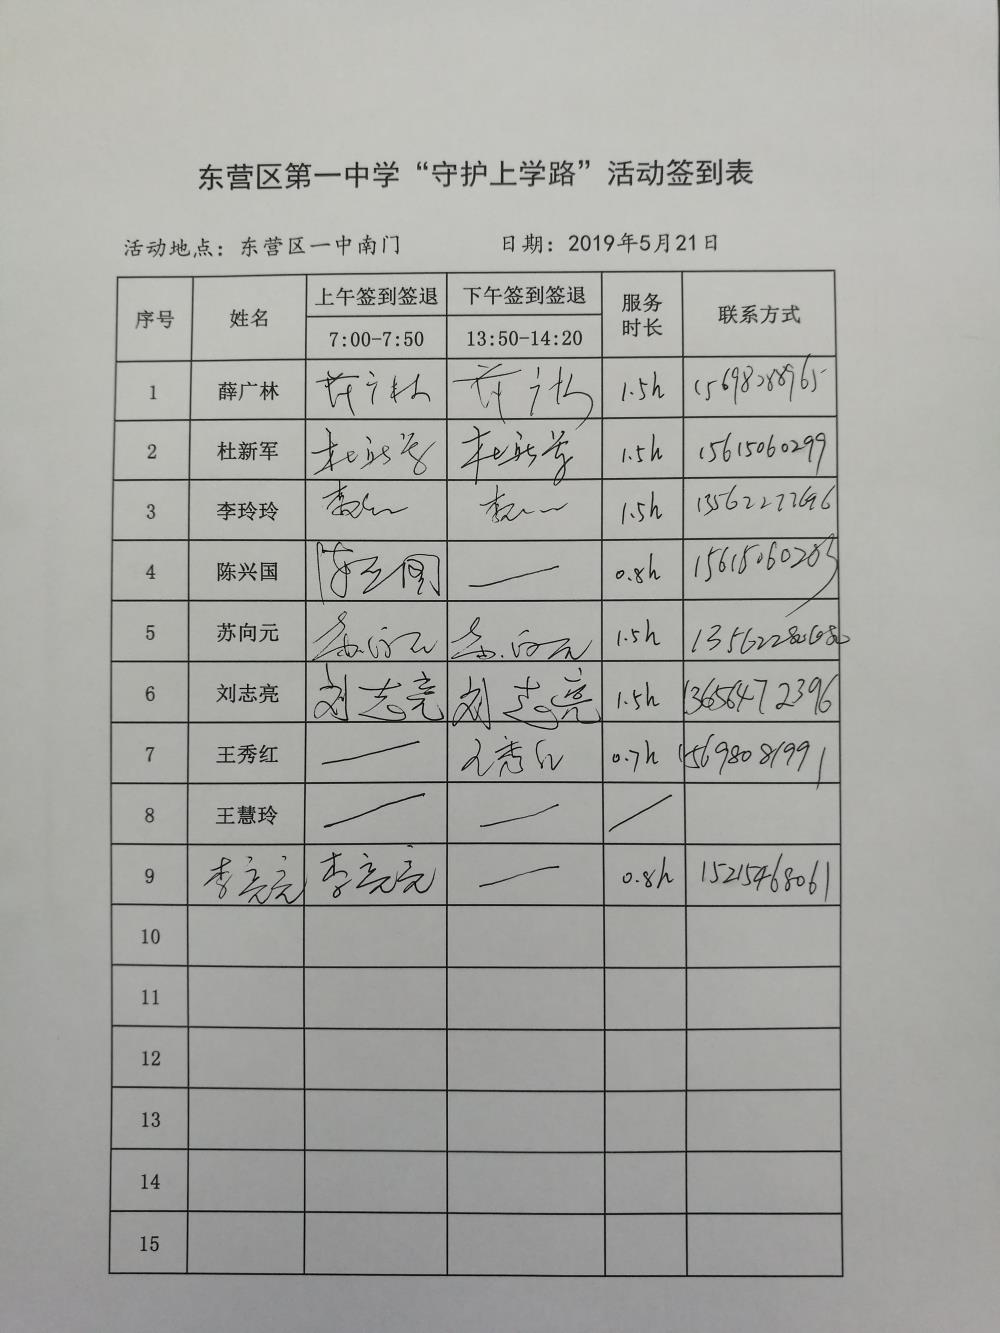 东营区第一中学“守护上学路”活动签到表
活动地点：东营区一中南门 日期：2019年5月21日
序号 姓名 上午签到签退 下午签到签退 服务时长 联系方式
7:00-7:50 13:50-14:20
1 薛广林 薛广林 薛广林 1.5h 15698288965
2 杜新军 杜新军 杜新军 1.5h 15615060299
3 李玲玲 1.5h 13562277696
4 陈兴国 陈兴国 — 0.8h 15615060283
5 苏向元 苏向元 苏向元 1.5h
6 刘志亮 刘志亮 刘志亮 1.5h 13656472396
7 王秀红 — 王秀红 0.7h 15698081991
8 王慧玲 — — /
9 李亮亮 李亮亮 — 0.8h 15215468061
10
11
12
13
14
15